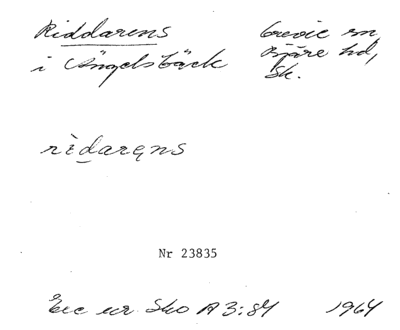 Riddarens Grevie sn,
i Ängelsbäck Bjäre hd,
Sk.
rìdaręns
Nr 23835
Exc ur Sko A 3:84 1964